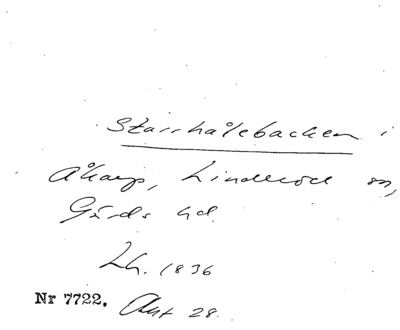 Starrhålebacken i
Åkarp, Linderöd sn,
Gärds hd.
Lh. 1836
Nr 7722. Akt 28.